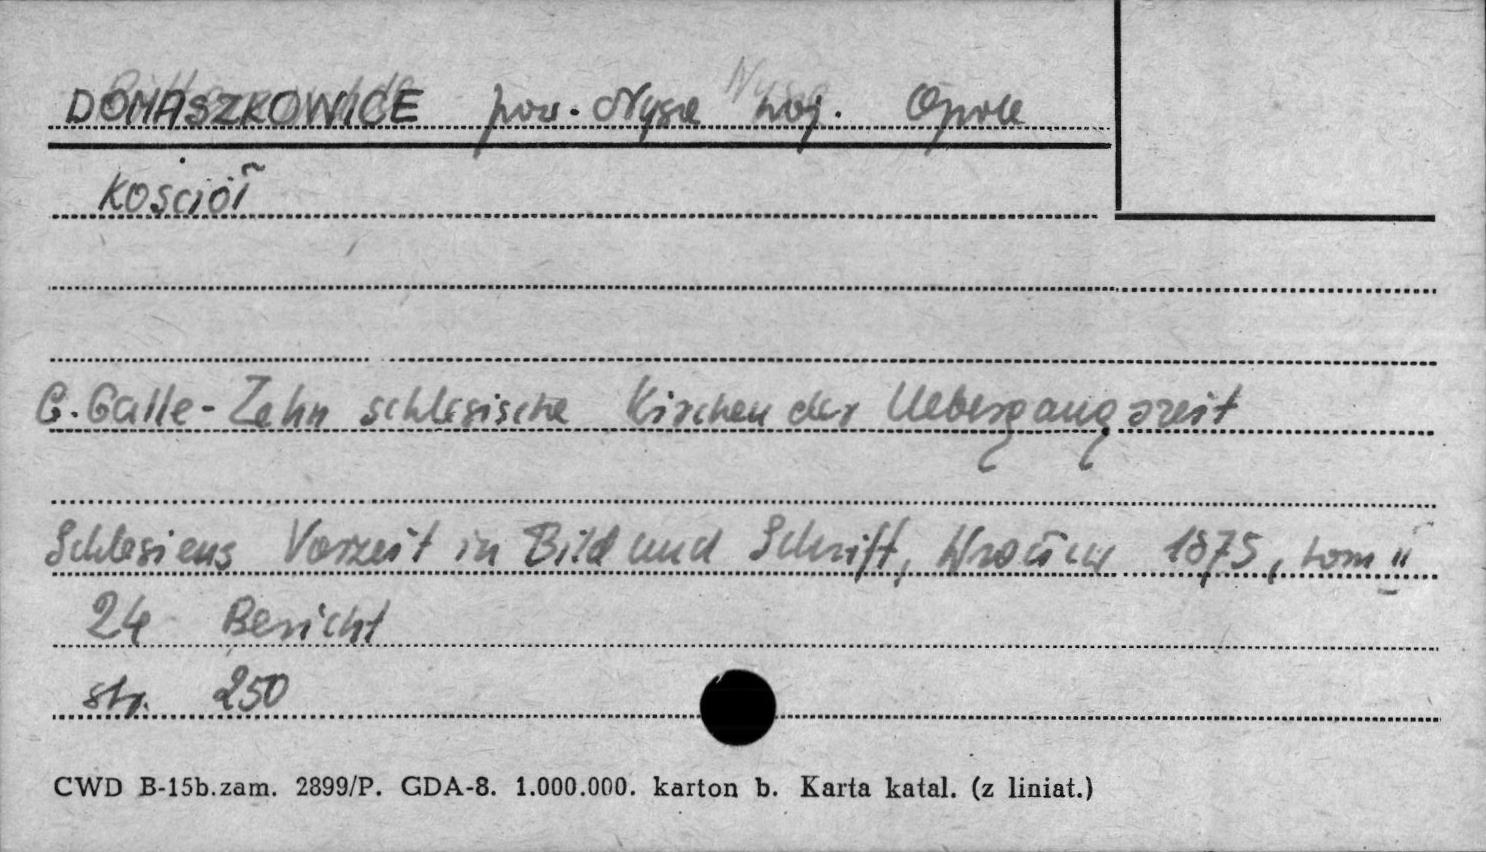 DOMASZKOWICE pow. Nysa woj. Opole
Kościół
G. Galle - Zehn schlesische Kirchen der Uebergangszeit
Schlesiens Vorzeit in Bild und Schrift, Wrocław 1875, tom II
24 Bericht
str. 250
CWD B-15b.zam. 2899/P. GDA-8. 1.000.000. karton b. Karta katal. (z liniat.)